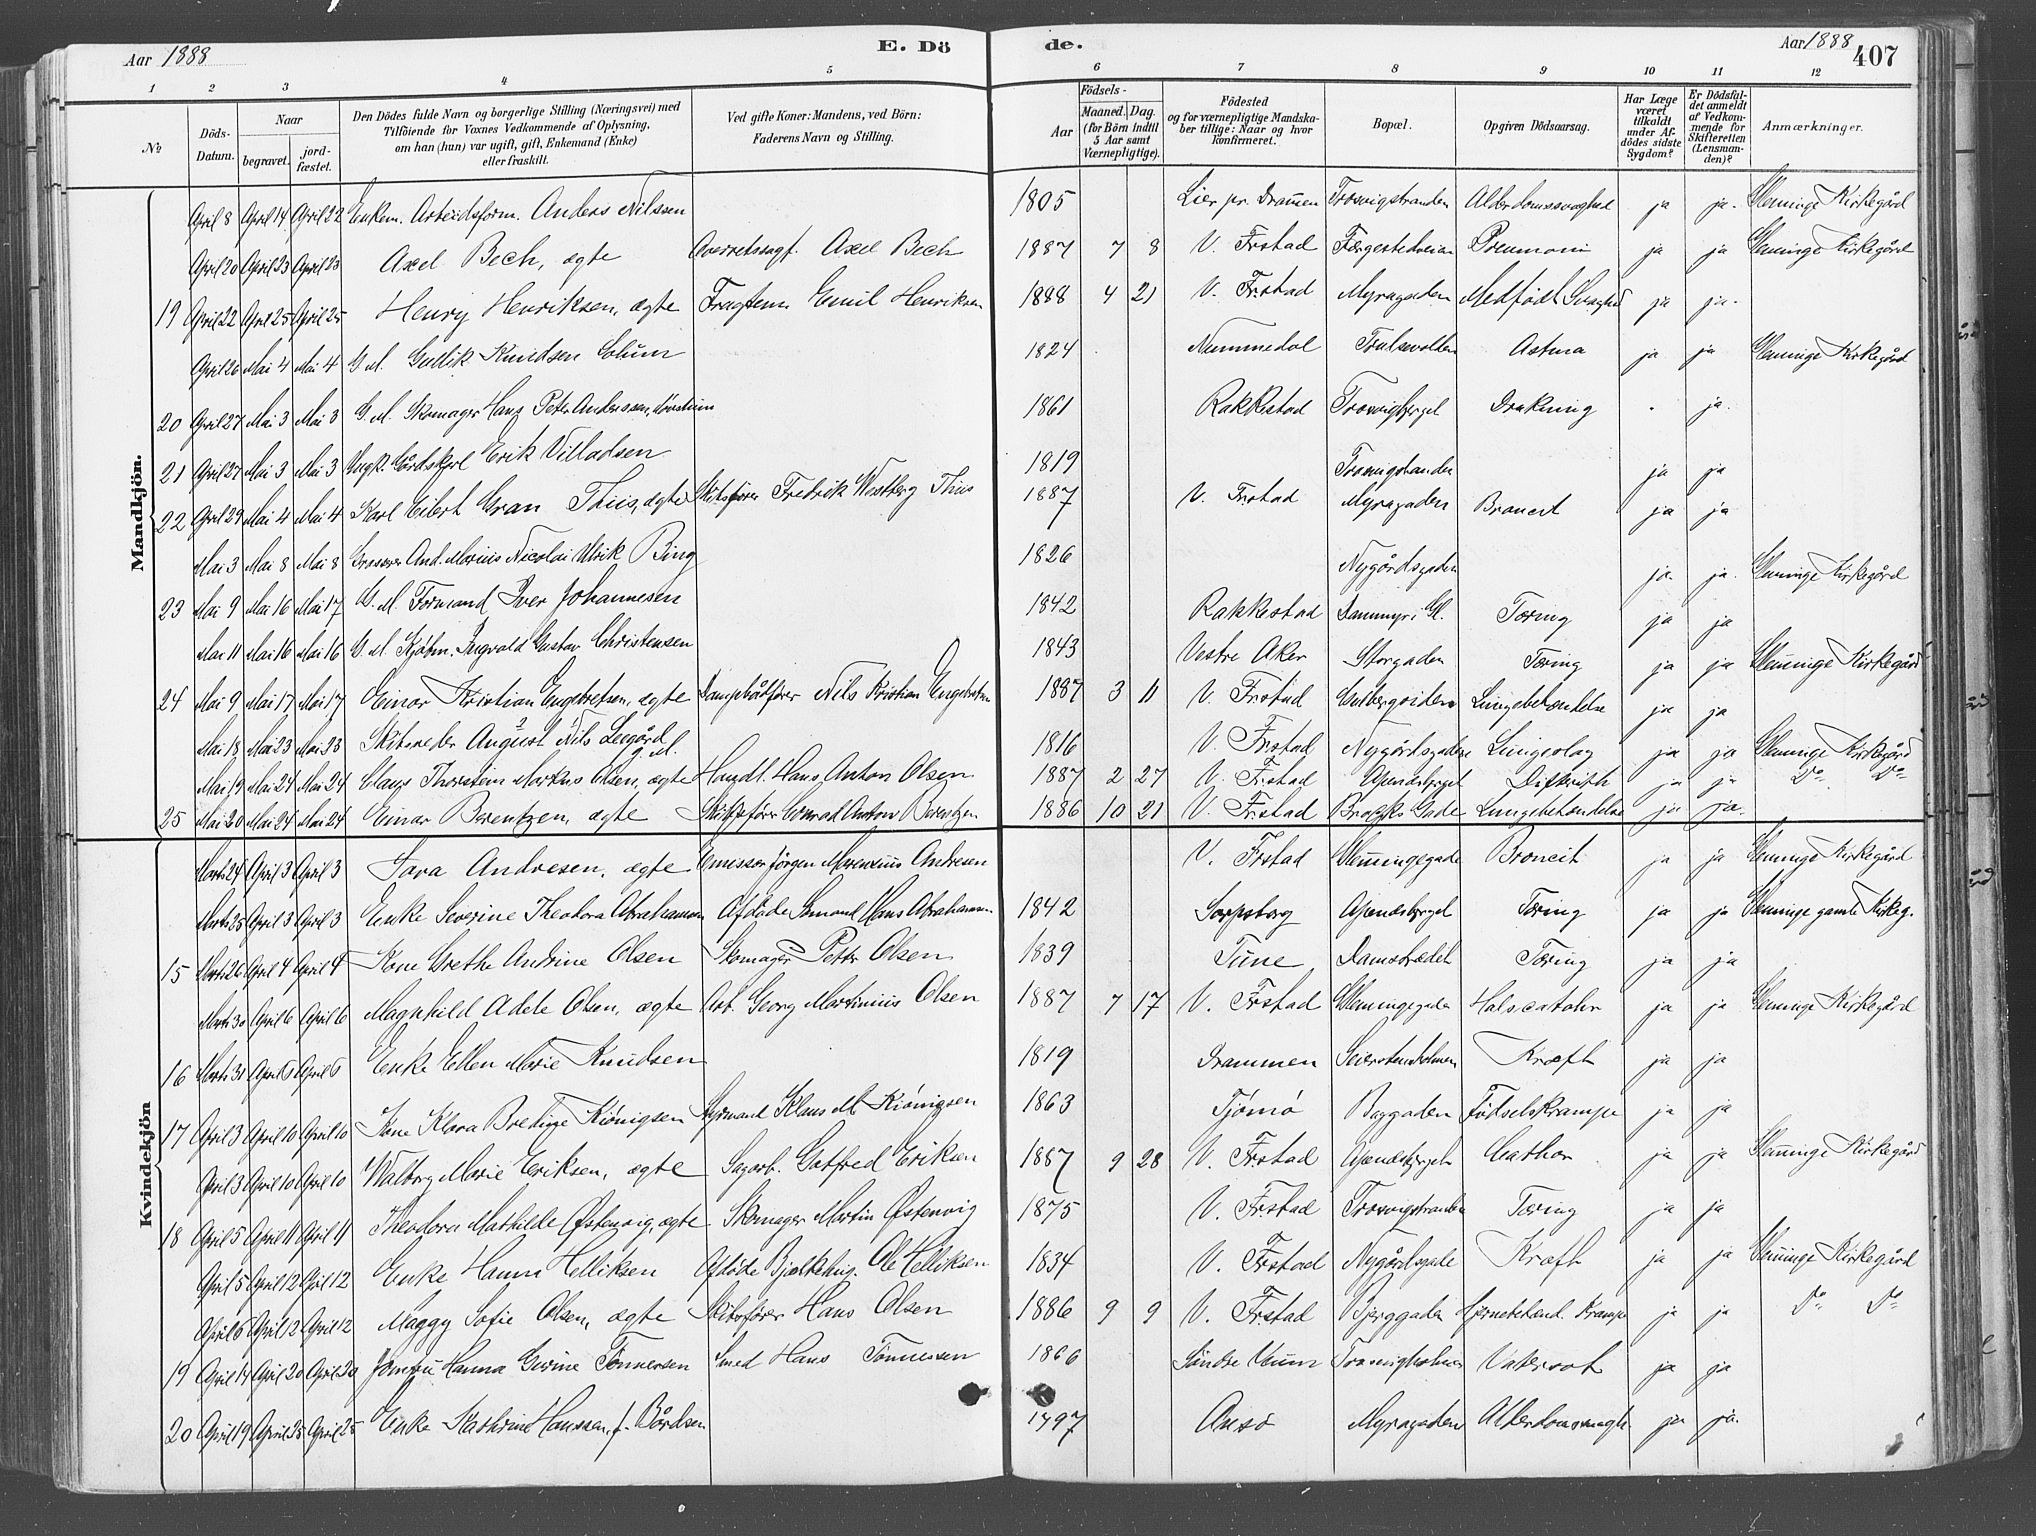 Aar 1888 E. Dö de. Aar 1888 407
1 2 3 4 5 6 7 8 9 10 11 12
No Döds-Datum. Naar begravet. jord-fæstet. Den Dödes fulde Navn og borgerlige Stilling (Næringsvei) med Tilföiende for Voxnes Vedkommende af Oplysning, om han (hun) var ugift, gift, Enkemand (Enke) eller fraskilt. Ved gifte Koner: Mandens, ved Börn: Faderens Navn og Stilling. Aar Födsels- Maaned. Dag. (for Börn indtil 5 Aar samt Værnepligtige). Födested og for værnepligtige Mandska-ber tillige: Naar og hvor konfirmeret. Bopæl. Opgiven Dödsaarsag. Har Læge været tilkaldt under Af-dödes sidste Sygdom? Er Dödsfal-det anmeldt af Vedkom-mende for Skifteretten (Lensman-den)? Anmærkninger.
Mandkjön.
April 8 April 14 April 22 Enkem. Arbeidsform. Anders Nilssen 1805 Lier pr. Dramen Trosvigstranden Alderdomssvaghed ja ja. Glemminge Kirkegård
April 20 April 23 April 23 Axel Bech, ægte Overretssagf. Axel Bech 1887 7 8 V. Frstad Færgestedveien Pneumoni ja ja Glemminge Kirkegård
19 April 22 April 25 April 25 Henry Henriksen, ægte Fragtem. Emil Henriksen 1888 4 21 V. Frstad Myragaden Medfødt Svaghed ja ja.
April 26 Mai 4 Mai 4 G. M. Gullik Knudsen Solum 1824 Nummedal Astma ja ja Glemminge Kirkegård
20 April 27 Mai 3 Mai 3 G. M. Skomager Hans Peter Anderssen, 1861 Rakkestad Trosvigbjerget Drukning . ja.
21 April 27 Mai 3 Mai 3 Ungk. Gårdskarl Erik Villadsen 1819 Trosvigstranden ja ja
22 April 29 Mai 4 Mai 4 Karl Eilert Gran Thiis, ægte Skibsfører Fredrik Westberg Thiis 1887 V. Frstad Myragaden Broncit ja ja
Mai 3 Mai 8 Mai 8 Grosserer And. Marius Nicolai Ulrik Bing 1826 Nygårdsgaden ja. ja. Glemminge Kirkegård
23 Mai 9 Mai 16 Mai 17 G. M. Formand Iver Johannesen 1842 Rakkestad Dammyr i Gl. Tæring ja ja
Mai 11 Mai 16 Mai 16 G. M. Kjøbm. Ingvald Gustav Christensen 1843 Vestre Aker Storgaden Tæring ja ja Glemminge Kirkegård
24 Mai 9 Mai 17 Mai 17 Einar Kristian Engebretsen, ægte Dampbådfører Nils Kristian Engebretsen 1887 3 11 V. Frstad Lungebetændelse ja ja
Mai 18 Mai 23 Mai 23 Skibsreder August Nils Leegård g. M. 1816 V. Frstad Nygårdsgaden Lungeslag ja ja Glemminge Kirkegård
Mai 19 Mai 24 Mai 24 Claus Thorstein Markus Olsen, ægte Handl. Hans Anton Olsen 1887 2 27 V. Frstad Apenæsbjerget Difterith ja ja Do Do
25 Mai 20 Mai 24 Mai 24 Einar Berentzen, ægte Skibsfører Conrad Anton Berentzen 1886 10 21 V. Frstad Brochs Gade Lungebetændelse ja ja.
Kvindekjön
Marts 24 April 3 April 3 Sara Andresen, ægte Emissær Jørgen Andresen V. Frstad Glemmingegade Broncit ja ja Glemminge Kirkegård
Marts 25 April 3 April 3 Enke Severine Theodora Abrahamsen Afdøde Sømand Hans Abrahamsen 1842 Sarpsborg Apenæsbjerget Tæring ja ja Glemminge gamle Kirkeg.
15 Marts 26 April 4 April 4 Kone Grethe Andrine Olsen Skomager Petter Olsen 1839 Tune Damstrædet Tæring ja ja
Marts 30 April 6 April 6 Maghild Adele Olsen, ægte Arb. Georg Martinius Olsen 1887 7 17 V. Frstad Glemmingegade Halscatohr ja ja Glemminge Kirkegård
16 Marts 31 April 6 April 6 Enke Ellen Marie Knudsen 1819 Drammen Kræft ja ja
17 April 3 April 10 April 10 Kone Klara Bredine Kiønigsen Styrmand Klaus M. Kiønigsen 1863 Tjømø Baggaden Fødselskrampe ja ja
April 3 April 10 April 10 Walborg Marie Eriksen, ægte Sagarb. Gotfred Eriksen 1887 9 28 V. Frstad Apenæsbjerget Cathar ja ja Glemminge Kirkegård
18 April 5 April 11 April 11 Theodora Mathilde Østenvig, ægte Skomager Martin Østenvig 1875 V. Frstad Trosvigstranden Tæring ja ja
April 5 April 12 April 12 Enke Hanna Helliksen Afdøde Ole Helliksen 1834 V. Frstad Nygårdsgade Kræft ja ja Glemminge Kirkegård
April 6 April 12 April 12 Maggy Sofie Olsen, ægte Skibsfører Hans Olsen 1886 9 9 V. Frstad Bjerggaden Hjernebetænd. Krampe ja ja Do Do
19 April 14 April 20 April 20 Jomfru Hanna Gurine Tønnessen Smed Hans Tønnessen 1866 Søndre Trosvigholmen ja ja
20 April 19 April 25 April 25 Enke Kathrine Hanssen, f. Bårdsen 1797 Onsø Myragaden Alderdomssvagh ja ja.